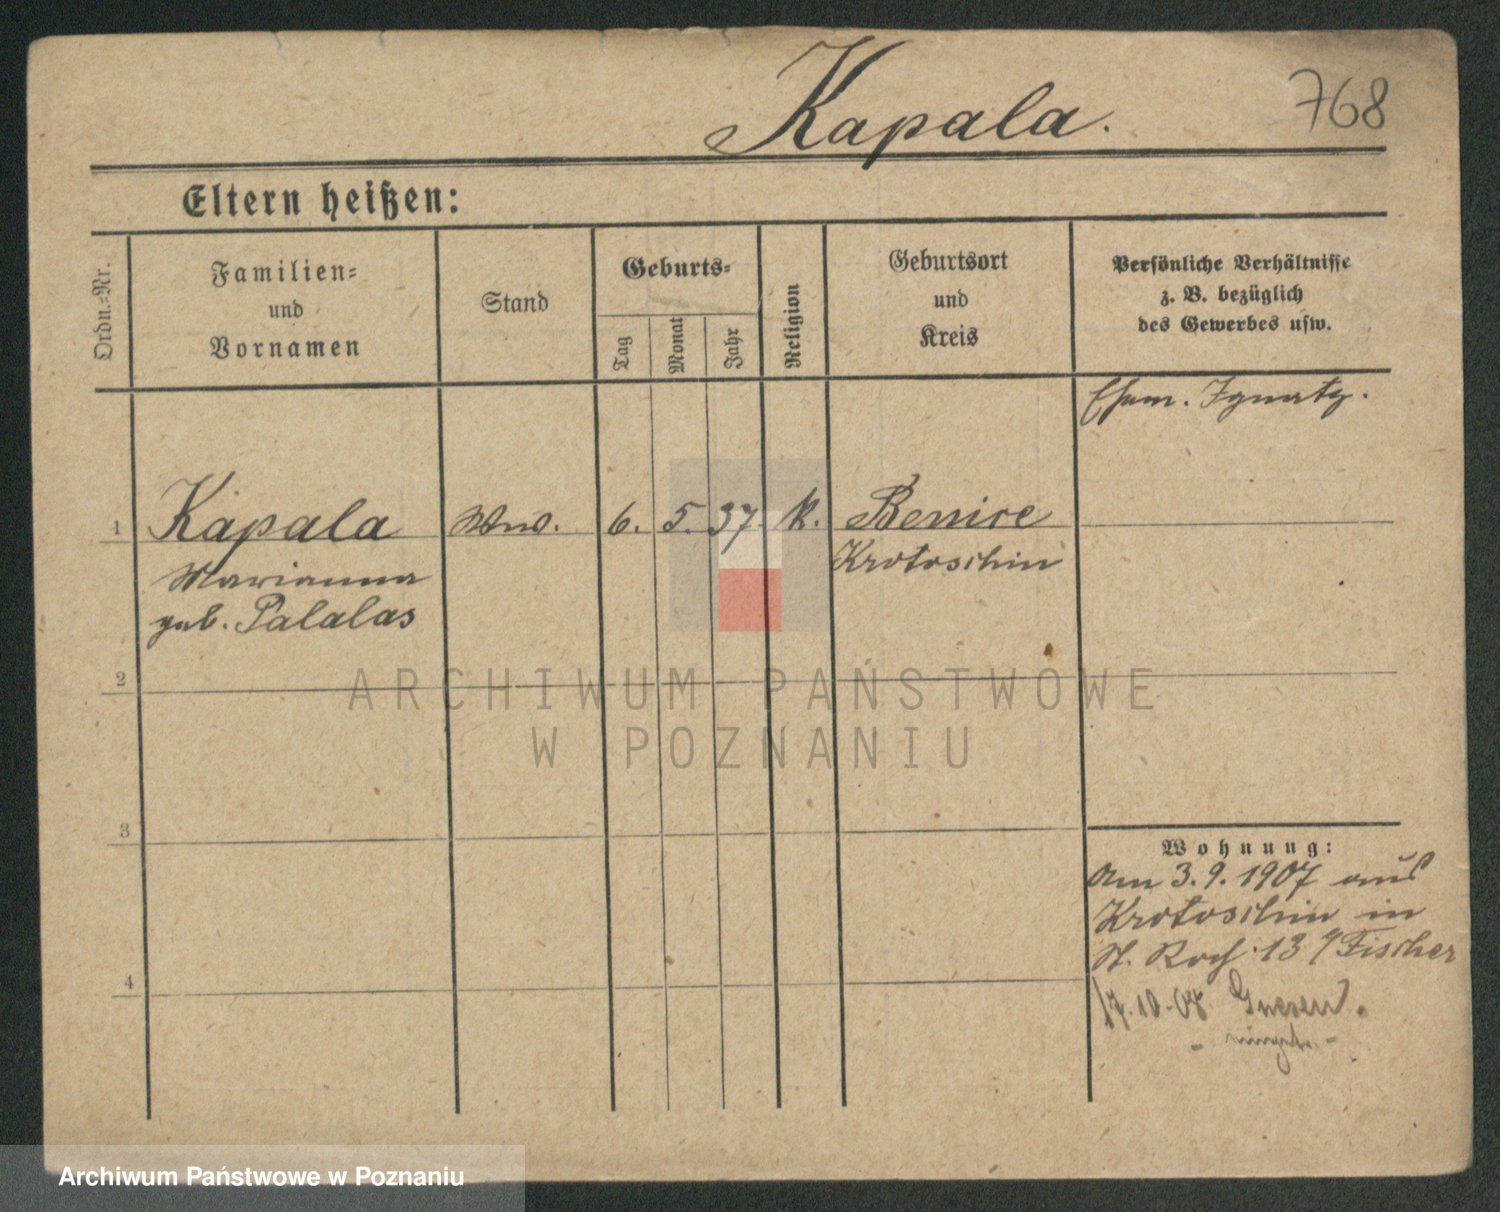 Kapala.
768
Eltern heißen:
Ordn.-Nr.
Familien-
und
Vornamen
Stand
Geburts-
Tag
Monat
Jahr
Religion
Geburtsort
und
Kreis
Persönliche Verhältnisse
z. B. bezüglich
des Gewerbes usw.
Ehem. Ignatz.
1 Kapala Ww. 6. 5. 37. k. Benice
Marianna Krotoschin
geb. Palalas
2
ARCHIWUM PAŃSTWOWE
W POZNANIU
3
Wohnung:
Am 3.9.1907 aus
Krotoschin in
St. Roch 13 Fischer
4
17.10.07 Gnesen.
Archiwum Państwowe w Poznaniu